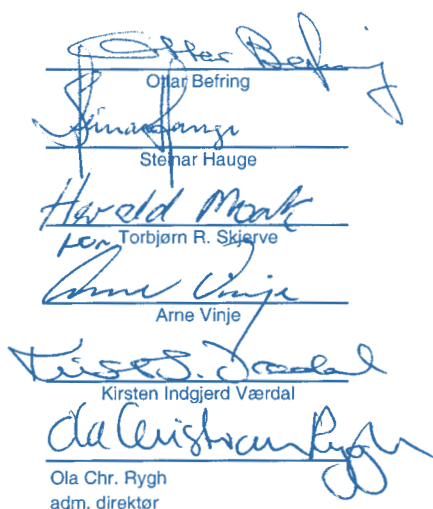 Ottar Befring
Ottar Befring
Steinar Hauge
Steinar Hauge
Harald Moark
for Torbjørn R. Skjerve
Arne Vinje
Arne Vinje
Kirsten I. Værdal
Kirsten Indgjerd Værdal
Ola Christian Rygh
Ola Chr. Rygh
adm. direktør